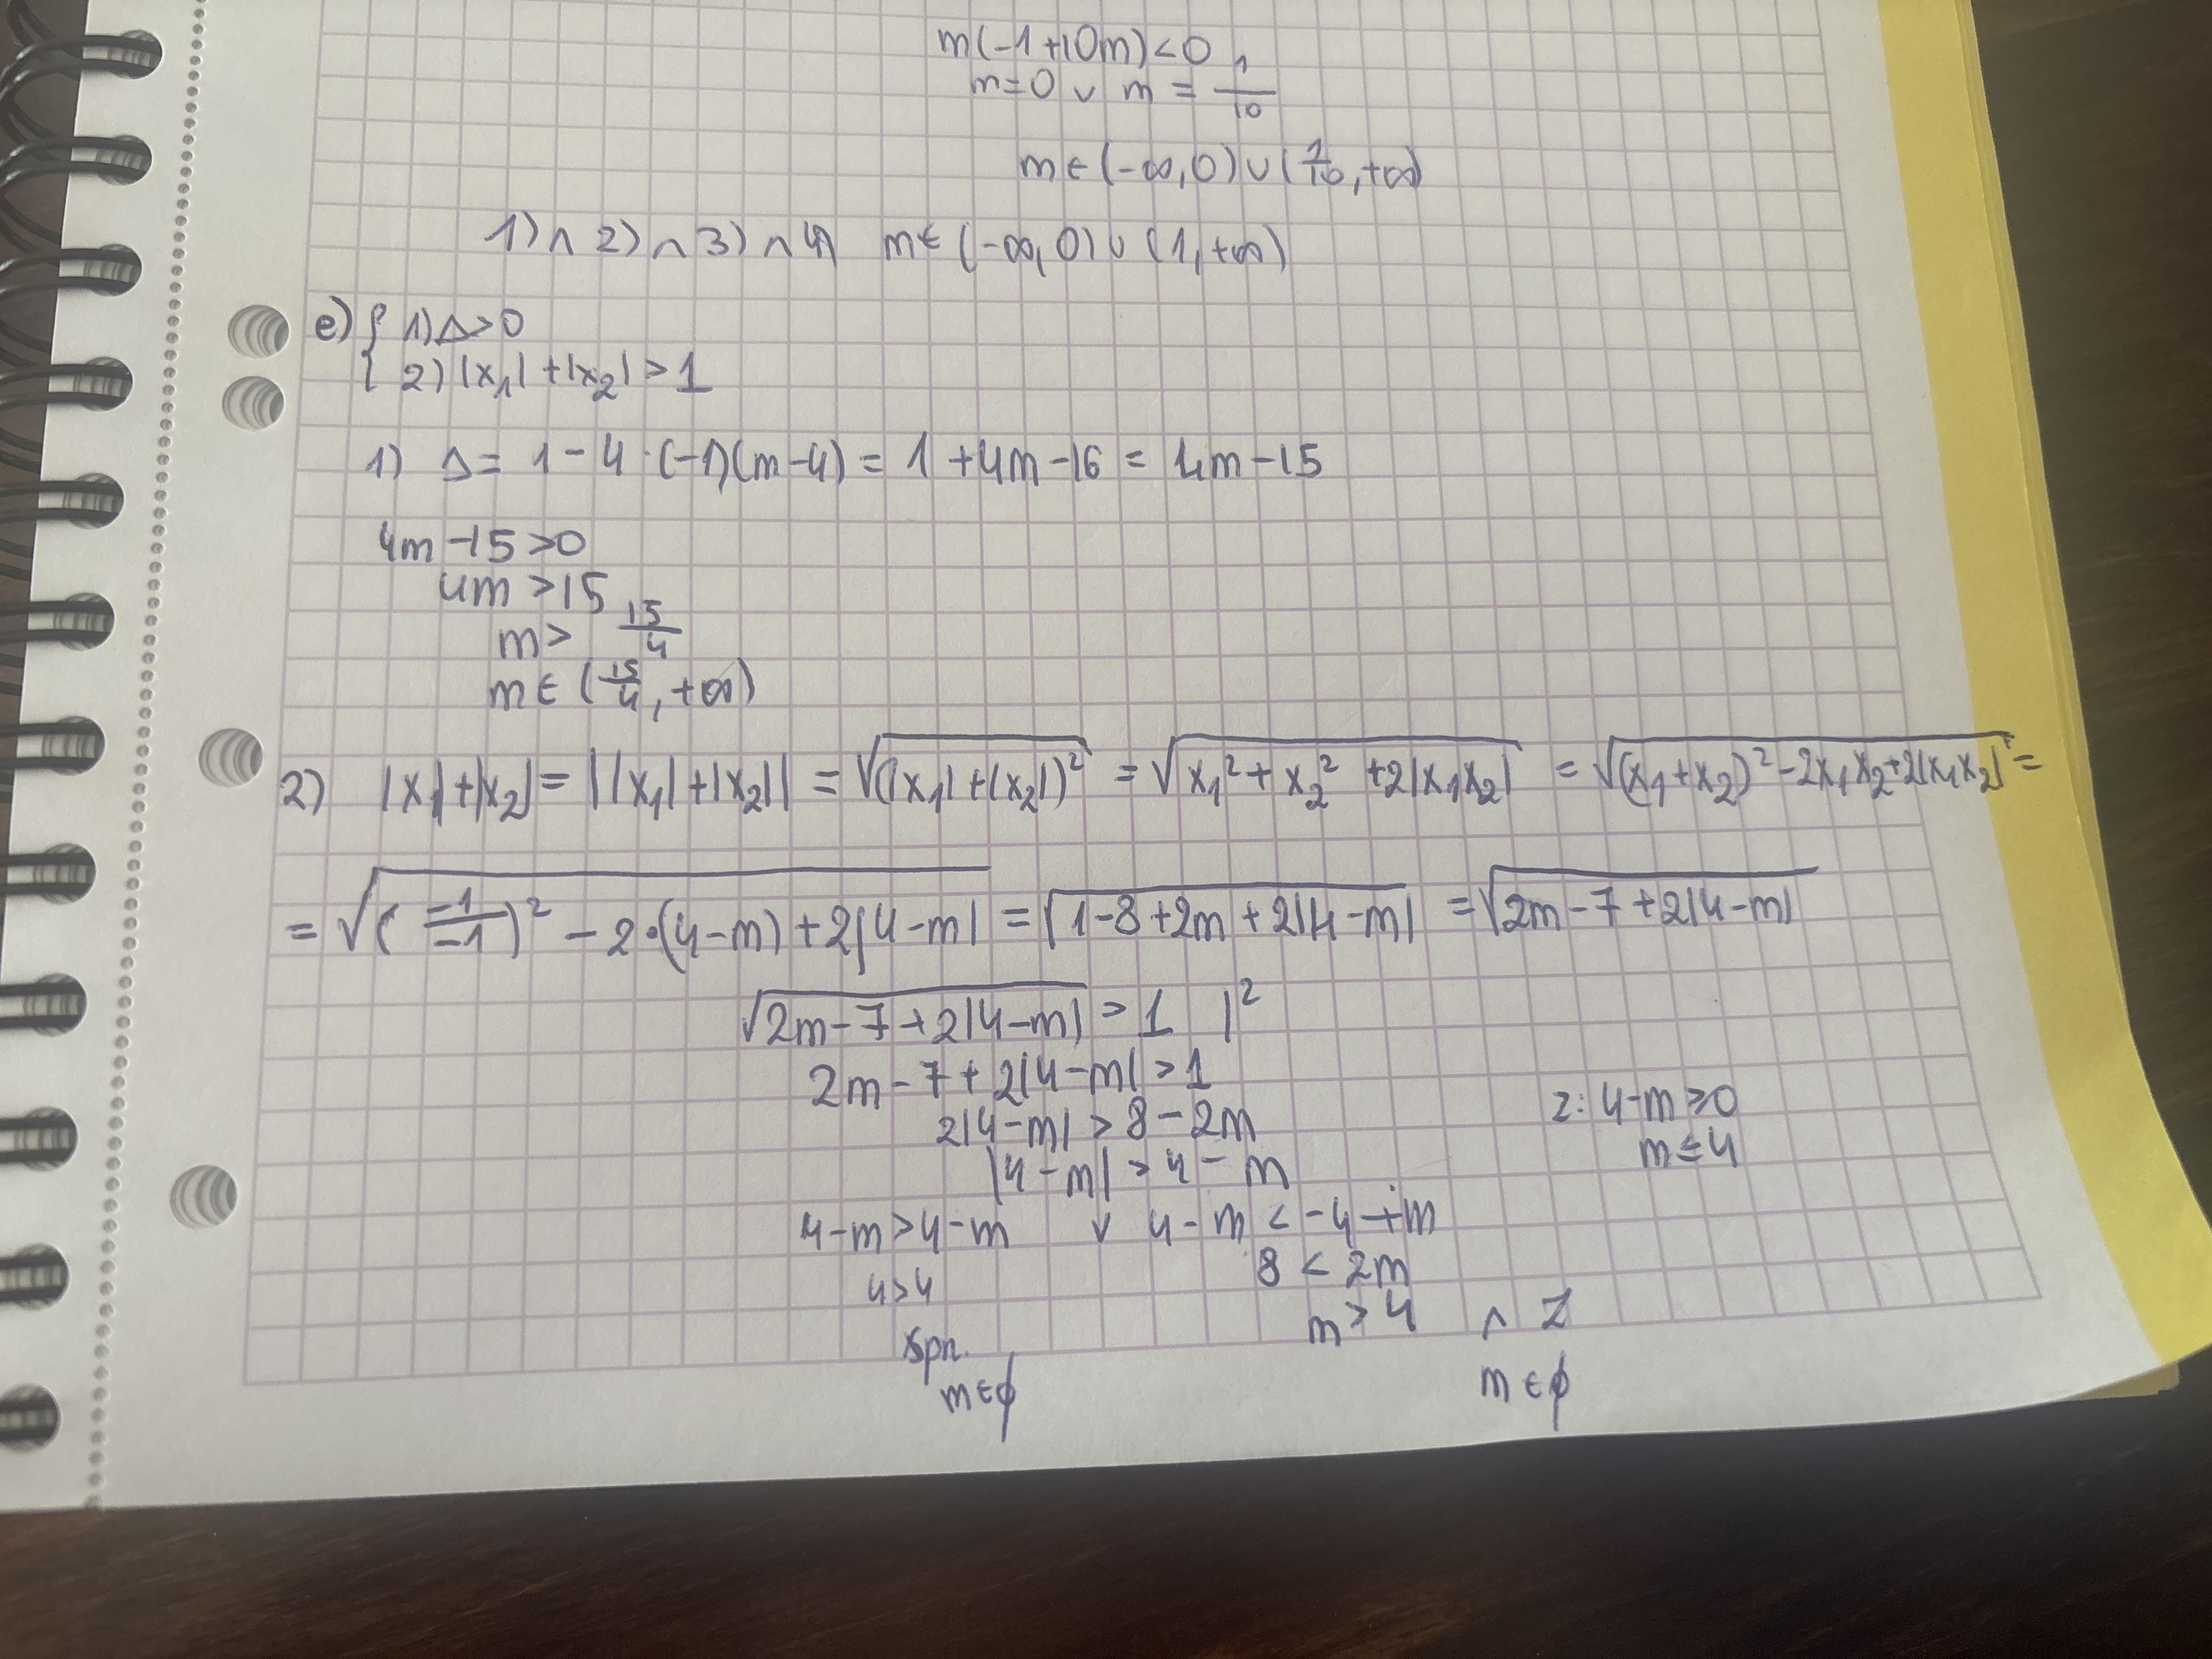 m(-1+10m)<0
m=0 ∨ m = 1/10
m∈(-∞,0)∪(1/10,+∞)
1)∧2)∧3)∧4) m∈(-∞,0)∪(1,+∞)
e) { 1) Δ>0
{ 2) |x₁|+|x₂|>1
1) Δ= 1-4·(-1)(m-4) = 1+4m-16 = 4m-15
4m-15>0
4m>15
m> 15/4
m∈(15/4,+∞)
2) |x₁|+|x₂| = ||x₁|+|x₂|| = √((|x₁|+|x₂|)²) = √(x₁²+x₂²+2|x₁x₂|) = √((x₁+x₂)²-2x₁x₂+2|x₁x₂|) =
= √((-1/-1)²-2·(4-m)+2|4-m|) = √(1-8+2m+2|4-m|) = √(2m-7+2|4-m|)
√(2m-7+2|4-m|) > 1 |²
2m-7+2|4-m|>1
2|4-m|>8-2m z: 4-m≥0
|4-m|>4-m m≤4
4-m>4-m ∨ 4-m<-4+m
4>4 8<2m
spr. m>4 ∧ Z
m∈∅ m∈∅